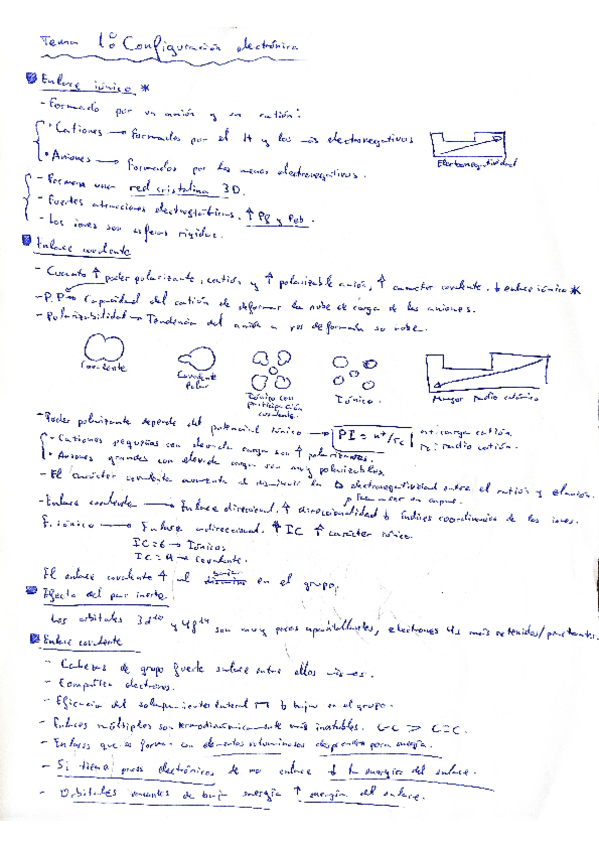 Tema 1: Configuración electrónica
Enlace iónico *
- Formado por un anión y un catión:
• Cationes → Formados por el H y los más electronegativos
• Aniones → Formados por los menos electronegativos.
Electronegatividad
- Forman una red cristalina 3D.
- Fuertes atracciones electrostáticas. ↑ Pf y Peb.
- Los iones son esferas rígidas.
Enlace covalente
- Cuanto ↑ poder polarizante, catión y ↑ polarizable anión, ↑ caracter covalente. ↓ enlace iónico *
- P.P → Capacidad del catión de deformar la nube de carga de los aniones.
- Polarizabilidad → Tendencia del anión a ver deformada su nube.
Covalente
Covalente Polar
Iónico con participación covalente.
Iónico.
Mayor radio catiónico
- Poder polarizante depende del potencial iónico → PI = n+/rc
n+: carga catión
rc: radio catión.
• Cationes pequeños con elevada carga son ↑ polarizantes.
• Aniones grandes con elevada carga son muy polarizables.
- El carácter covalente aumenta al disminuir la Δ electronegatividad entre el catión y el anión.
- Enlace covalente → Enlace direccional. ↑ direccionalidad ↓ índices coordinación de los iones.
E. iónico → Enlace adireccional. ↑ IC ↑ carácter iónico.
IC = 6 → Iónicos
IC = 4 → Covalente.
El enlace covalente ↑ al en el grupo.
Efecto del par inerte.
Los orbitales 3d10 y 4f14 son muy poco apantallantes, electrones 4s más retenidos/penetrantes.
Enlace covalente
- Cabezas de grupo fuerte enlace entre ellos mismos.
- Comparten electrones.
- Eficiencia del solapamiento lateral π ↓ bajar en el grupo.
- Enlaces múltiples son termodinámicamente más inestables. C-C > C=C.
- Enlaces que se forman con elementos voluminosos desprenden poca energía.
- Si tiene pares electrónicos de no enlace ↓ la energía del enlace.
- Orbitales vacantes de baja energía ↑ energía del enlace.